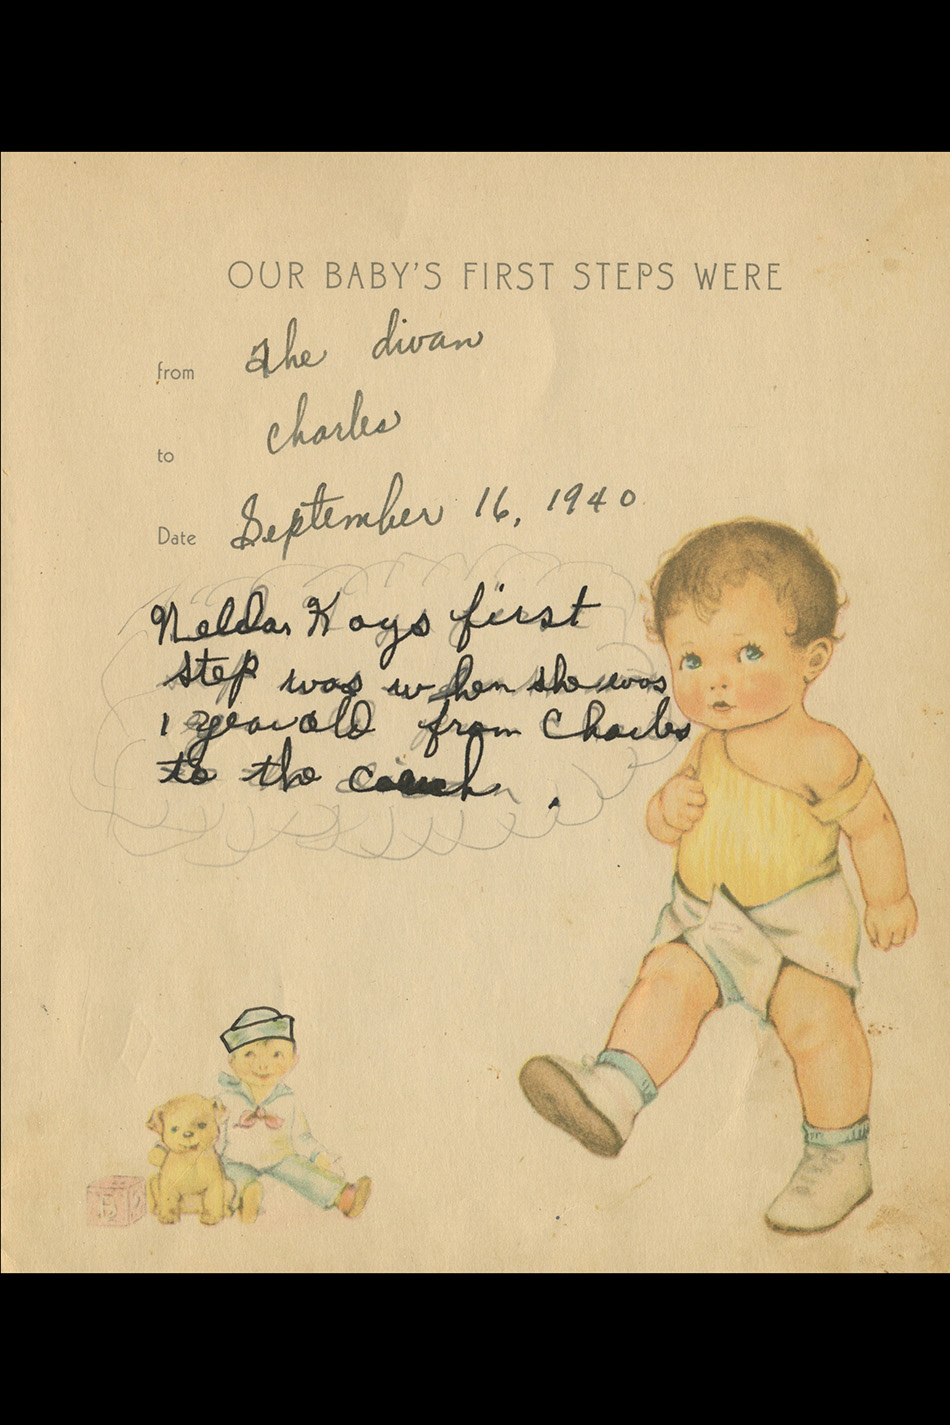 OUR BABY'S FIRST STEPS WERE
from The divan
to Charles
Date September 16, 1940
Nelda Kays first
step was when she was
1 year old from Charles
to the couch.